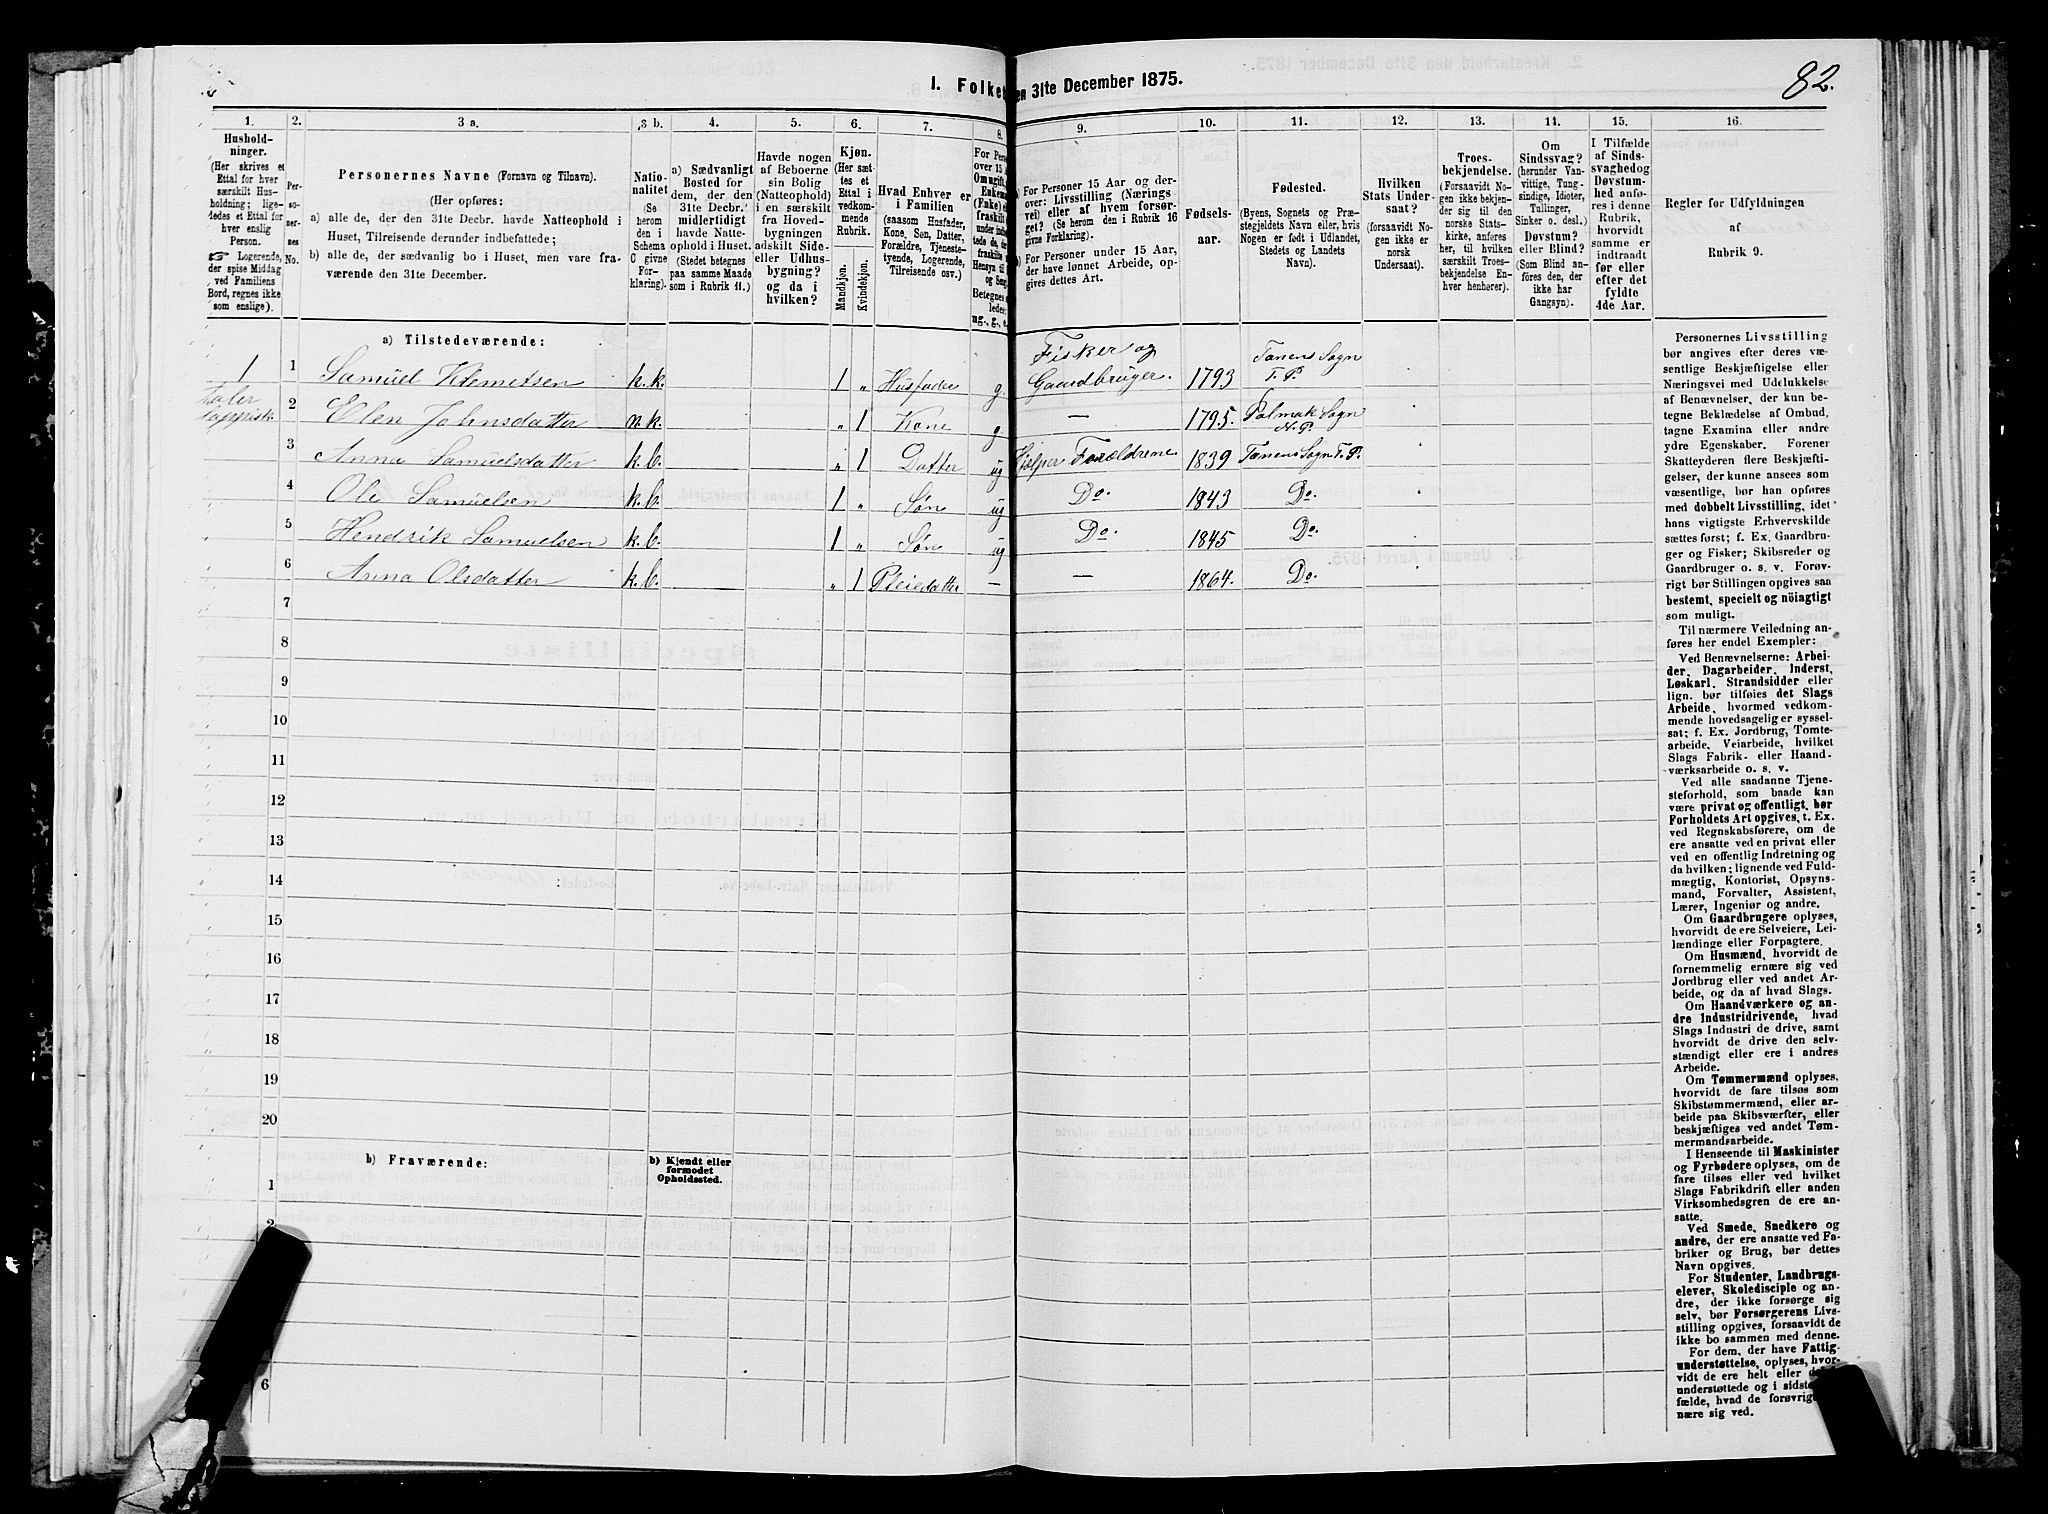 I. Folket
en 31te December 1875.
82.
1.
2.
3 a.
3 b.
4.
5.
6.
7.
8.
9.
10.
11.
12.
13.
14.
15.
16.
Hushold-
ninger.
(Her skrives et
Ettal for hver
særskilt Hus-
holdning; lige-
ledes et Ettal for
hver enslig
Person.
☞ Logerende,
der spise Middag
ved Familiens
Bord, regnes ikke
som enslige).
Per-
so-
ner-
nes
No.
Personernes Navne (Fornavn og Tilnavn).
(Her opføres:
a) alle de, der den 31te Decbr. havde Natteophold i
Huset, Tilreisende derunder indbefattede;
b) alle de, der sædvanlig bo i Huset, men vare fra-
værende den 31te December.
Natio-
nalitet
(Se
herom
den i
Schema
C givne
For-
klaring).
a) Sædvanligt
Bosted for
dem, der den
31te Decbr.
midlertidigt
havde Natte-
ophold i Huset.
(Stedet betegnes
paa samme Maade
som i Rubrik 11.)
Havde nogen
af Beboerne
sin Bolig
(Natteophold)
i en særskilt
fra Hoved-
bygningen
adskilt Side-
eller Udhus-
bygning?
og da i
hvilken?
Kjøn.
(Her sæt-
tes et
Ettal i
vedkom-
mende
Rubrik.
Mandkjøn.
Kvindekjøn.
Hvad Enhver er
i Familien
(saasom Husfader,
Kone, Søn, Datter,
Forældre, Tjeneste-
tyende, Logerende,
Tilreisende osv.)
For Pers
over 15 A
Omugift,
Enkema
(Enke) e
fraskilt
under indb
tede de, de
fraskilte
Hensyn til
og Seng
Betegnes
ledes:
ug., g., e.
a) For Personer 15 Aar og der-
over: Livsstilling (Nærings-
vei) eller af hvem forsør-
get? (Se herom den i Rubrik 16
givne Forklaring).
b) For Personer under 15 Aar,
der have lønnet Arbeide, op-
gives dettes Art.
Fødsels-
aar.
Fødested.
(Byens, Sognets og Præ-
stegjeldets Navn eller, hvis
Nogen er født i Udlandet,
Stedets og Landets
Navn).
Hvilken
Stats Under-
saat?
(forsaavidt No-
gen ikke er
norsk
Undersaat).
Troes-
bekjendelse.
(Forsaavidt No-
gen ikke bekjen-
der sig til den
norske Stats-
kirke, anføres
her, til hvilken
særskilt Troes-
bekjendelse En-
hver henhører).
Om
Sindssvag?
(herunder Van-
vittige, Tung-
sindige, Idioter,
Tullinger,
Sinker o. desl.)
Døvstum?
eller Blind?
(Som Blind an-
føres den, der
ikke har
Gangsyn).
I Tilfælde
af Sinds-
svaghedog
Døvstum-
hed anfø-
res i denne
Rubrik,
hvorvidt
samme er
indtraadt
før eller
efter det
fyldte
4de Aar.
Regler for Udfyldningen
af
Rubrik 9.
a) Tilstedeværende:
1 1 Samuel Klemetsen k.k. 1 „ Husfader g. Fisker og Gaardbruger. 1793 Tanens Sogn T. P.
taler lappisk. 2 Elen Johnsdatter n.k. „ 1 Kone g — 1795. Polmak Sogn N. P.
3 Anna Samuelsdatter k.b. „ 1 Datter ug Hjælper Forældrene 1839 Tanens Sogn T. P.
4 Ole Samuelsen k.b. 1 „ Søn ug Do. 1843 Do.
5 Hendrik Samuelsen k.b. 1 „ Søn ug Do. 1845 Do.
6 Anna Olsdatter k.b. „ 1 Pleiedatter — — 1864. Do.
7
8
9
10
11
12
13
14
15
16
17
18
19
20
b) Fraværende:
b) Kjendt eller
formodet
Opholdssted.
1
2
6
Personernes Livsstilling
bør angives efter deres væ-
sentlige Beskjæftigelse eller
Næringsvei med Udelukkelse
af Benævnelser, der kun be-
tegne Beklædelse af Ombud,
tagne Examina eller andre
ydre Egenskaber. Forener
Skatteyderen flere Beskjæfti-
gelser, der kunne ansees som
væsentlige, bør han opføres
med dobbelt Livsstilling, idet
hans vigtigste Erhvervskilde
sættes først; f. Ex. Gaardbru-
ger og Fisker; Skibsreder og
Gaardbruger o. s. v. Forøv-
rigt bør Stillingen opgives saa
bestemt, specielt og nöiagtigt
som muligt.
Til nærmere Veiledning an-
føres her endel Exempler:
Ved Benævnelserne: Arbei-
der, Dagarbeider, Inderst,
Løskarl, Strandsidder eller
lign. bør tilføies det Slags
Arbeide, hvormed vedkom-
mende hovedsagelig er syssel-
sat; f. Ex. Jordbrug, Tomte-
arbeide, Veiarbeide, hvilket
Slags Fabrik- eller Haand-
værksarbeide o. s. v.
Ved alle saadanne Tjene-
steforhold, som baade kan
være privat og offentligt, bør
Forholdets Art opgives, t. Ex.
ved Regnskabsførere, om de
ere ansatte ved en privat eller
ved en offentlig Indretning og
da hvilken; lignende ved Fuld-
mægtig, Kontorist, Opsyns-
mand, Forvalter, Assistent,
Lærer, Ingeniør og andre.
Om Gaardbrugere oplyses,
hvorvidt de ere Selveiere, Lei-
lændinge eller Forpagtere.
Om Husmænd, hvorvidt de
fornemmelig ernære sig ved
Jordbrug eller ved andet Ar-
beide, og da af hvad Slags.
Om Haandværkere og an-
dre Industridrivende, hvad
Slags Industri de drive, samt
hvorvidt de drive den selv-
stændigt eller ere i andres
Arbeide.
Om Tømmermænd oplyses,
hvorvidt de fare tilsøs som
Skibstømmermænd, eller ar-
beide paa Skibsværfter, eller
beskjæftiges ved andet Tøm-
mermandsarbeide.
I Henseende til Maskinister
og Fyrbødere oplyses, om de
fare tilsøs eller ved hvilket
Slags Fabrikdrift eller anden
Virksomhedsgren de ere an-
satte.
Ved Smede, Snedkere og
andre, der ere ansatte ved Fa-
briker og Brug, bør dettes
Navn opgives.
For Studenter, Landbrugs-
elever, Skoledisciple og an-
dre, der ikke forsørge sig
selv, bør Forsørgerens Livs-
stilling opgives, forsaavidt de
ikke bo sammen med denne.
For dem, der have Fattig-
understøttelse, oplyses, hvor-
vidt de ere helt eller
understøttede og i sidst
fælde, hvad de forøvrig
nære sig ved.